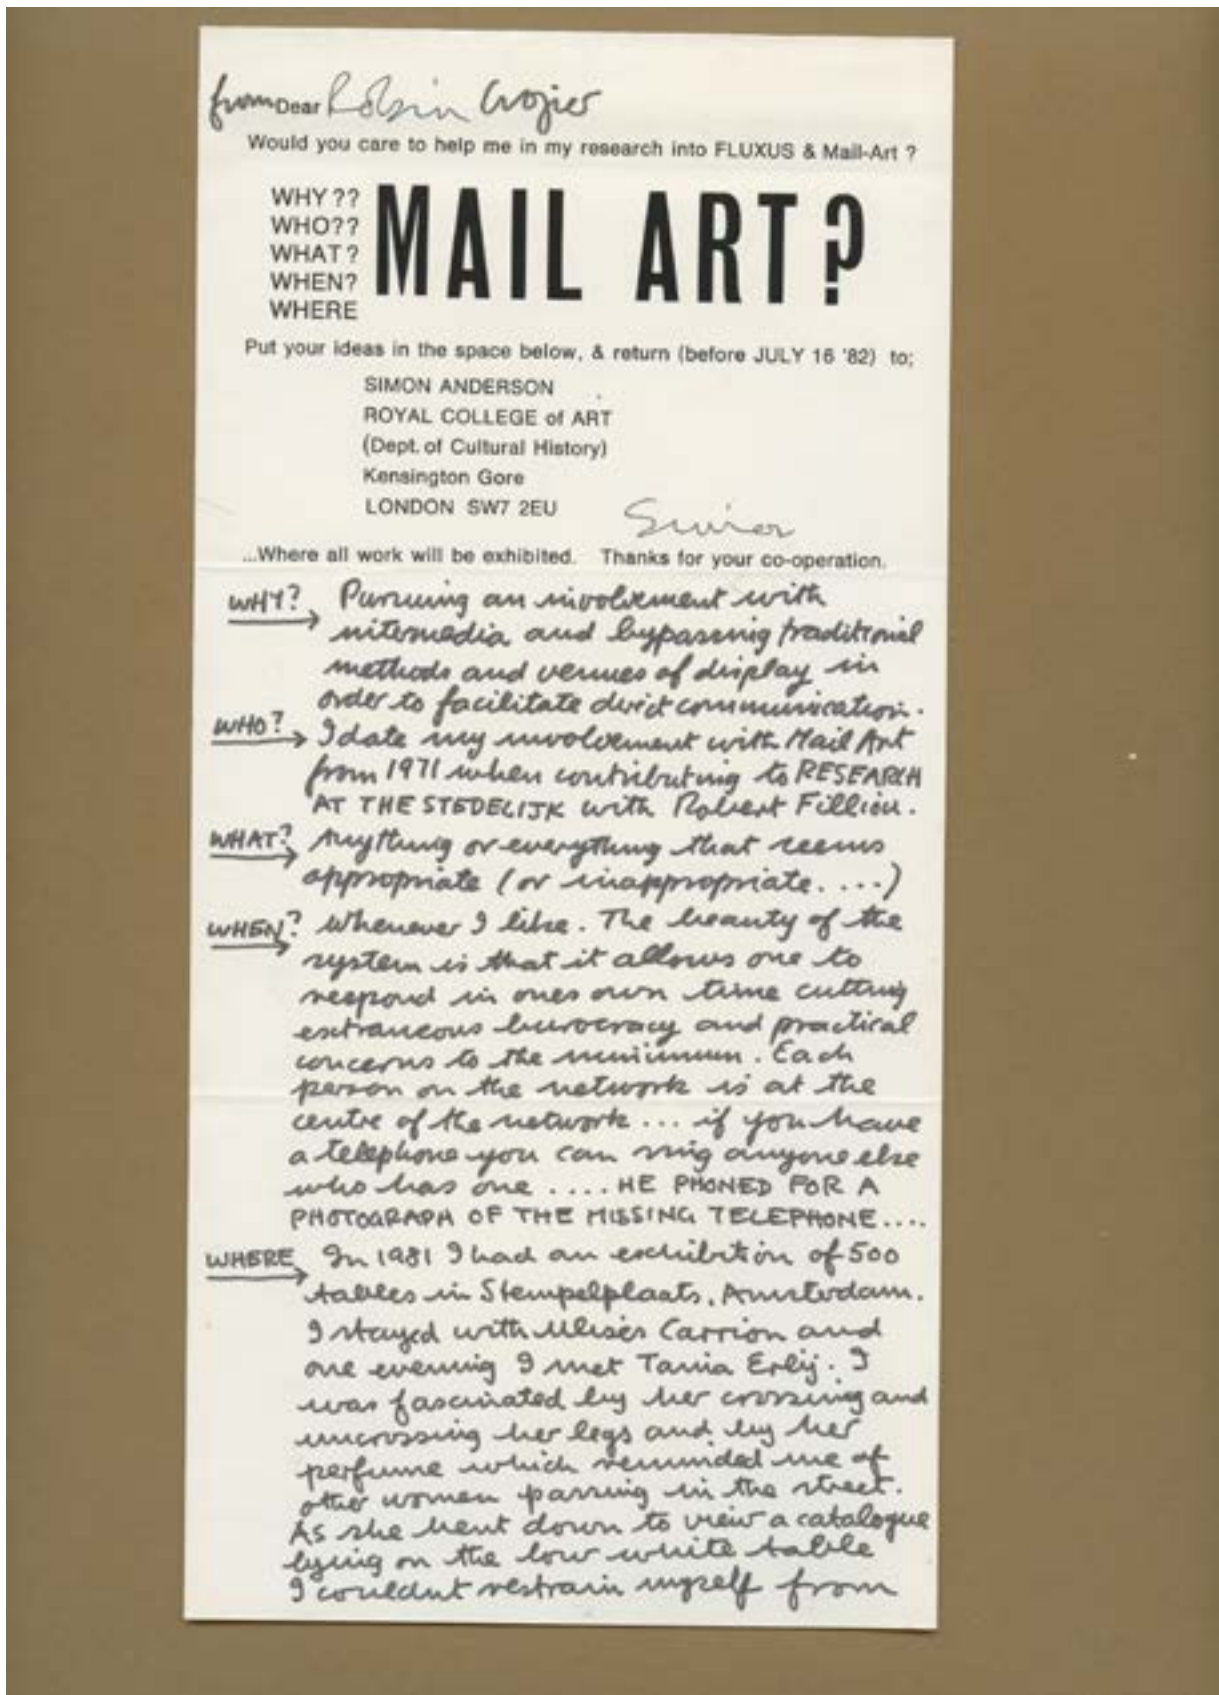 from Dear Robin Crozier
Would you care to help me in my research into FLUXUS & Mail-Art ?
WHY ??
WHO??
WHAT ?
WHEN?
WHERE
MAIL ART?
Put your ideas in the space below, & return (before JULY 16 '82) to;
SIMON ANDERSON
ROYAL COLLEGE of ART
(Dept. of Cultural History)
Kensington Gore
LONDON SW7 2EU
Simon
...Where all work will be exhibited. Thanks for your co-operation.
WHY? Pursuing an involvement with
intermedia and bypassing traditional
methods and venues of display in
order to facilitate direct communication.
WHO? I date my involvement with Mail Art
from 1971 when contributing to RESEARCH
AT THE STEDELIJK with Robert Filliou.
WHAT? Anything or everything that seems
appropriate (or inappropriate....)
WHEN? Whenever I like. The beauty of the
system is that it allows one to
respond in ones own time cutting
extraneous burocracy and practical
concerns to the minimum. Each
person on the network is at the
centre of the network ... if you have
a telephone you can ring anyone else
who has one .... HE PHONED FOR A
PHOTOGRAPH OF THE MISSING TELEPHONE....
WHERE In 1981 I had an exhibition of 500
tables in Stempelplaats, Amsterdam.
I stayed with Ulises Carrion and
one evening I met Tania Erlij. I
was fascinated by her crossing and
uncrossing her legs and by her
perfume which reminded me of
other women passing in the street.
As she bent down to view a catalogue
lying on the low white table
I couldnt restrain myself from